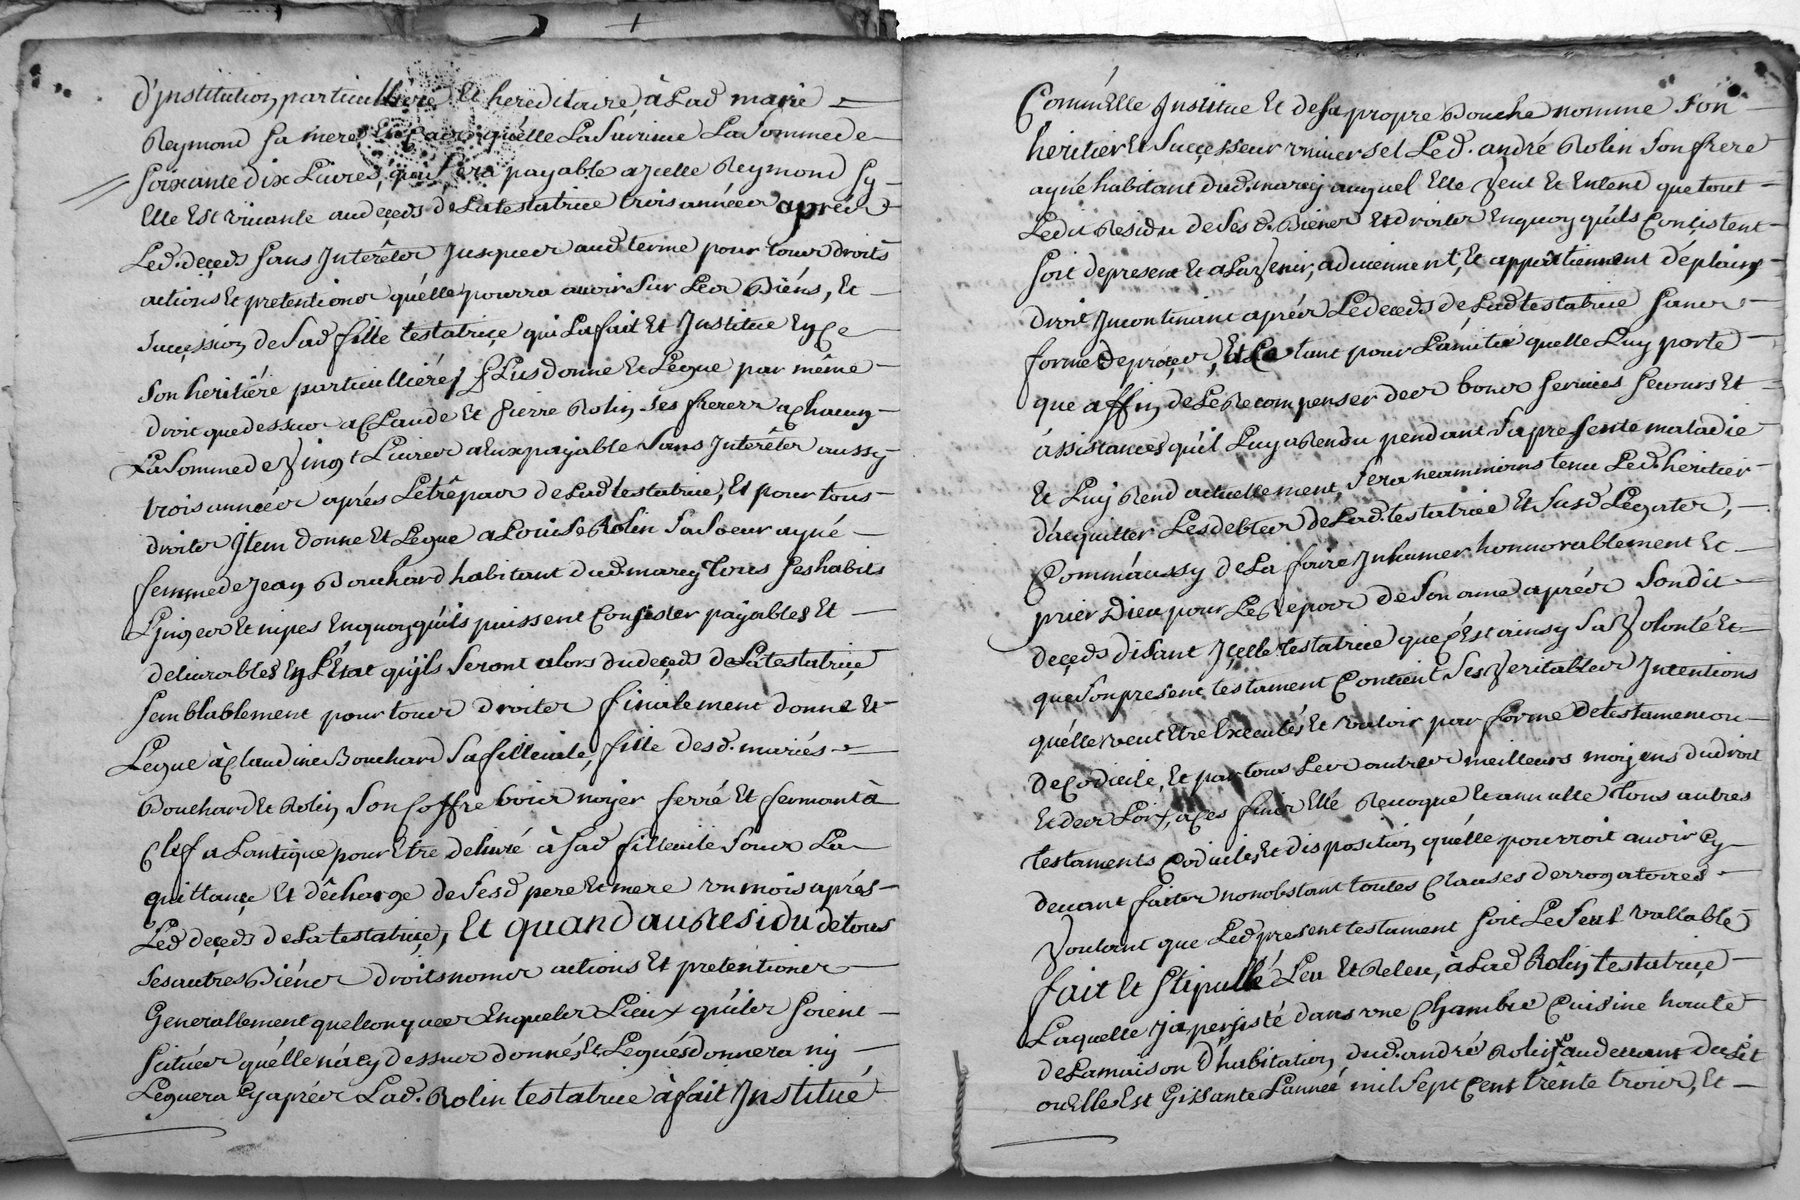 d'jnstitution particulliére Et hereditaire à Lad marie
Reymond sa mere Et cas quélle La survive La somme de
soixante dix Livres, qui sera payable a jcelle Reymond sy
Elle Est vivante au deçeds de La testatrice trois années aprés
Led. deçeds sans Jnterêts jusques aud terme pour tous droits
actions Et pretentions quélle pourra avoir sur Les Biéns, Et
succession de sad fille testatriçe qui La fait Et Jnstitue En Ce
son heritiére particulliére, Plus donne Et Legue par même
droit que dessus a Claude Et pierre Rolin ses freres a chacun
La somme de vingt Livres a Eux payable sans Jnterêts aussy
trois années aprés Le trêpas de Lad testatrice, Et pour tous
droits Jtem donne Et Legue a Louise Rolin sa soeur ayné
femme de Jean Bouchard habitant dud marcy tous ses habits
Linges Et nipes En quoy quils puissent Consister payables Et
delivrables En L'état quils seront alors du deçeds de La testatriçe
semblablement pour tous droits finalement donne Et
Legue à Claudine Bouchard sa filleule, fille desd. mariés
Bouchard Et Rolin son Coffre bois noyer ferré Et fermant à
Clef a Lantique pour Etre delivré à sad filleule sous La
quittançe Et décharge de sesd pere Et mere un mois aprés
Led deçeds de La testatriçe, Et quand au Residu de tous
ses autres Biéns droits noms actions Et pretentions
Generallement quelconques En quels Lieux quils soient
scitués quélle n'a cy dessus donnés Et Legués donnera ny
Leguera Cy aprés Lad. Rolin testatrice à fait Jnstitué
Comm'Elle Jnstitue Et de sa propre Bouche nomme son
heritier Et Successeur universel Led. andré Rolin son frere
ayné habitant dud. marcy auquel Elle veut Et Entend que tout
Ledit Residu de ses d. Biens Et droits En quoy quils Conçistent
soit de present Et a Lavenir, adviennent, Et appartiennent de plain
droit Jncontinant aprés Le deceds de Lad testatrice sans
forme de proçes, Et Ce tant pour Lamitié quelle Luy porte
que affin de Le Recompenser des bons services secours Et
assistances qu'il Luy a Rendu pendant sa presente maladie
Et Luy Rend actuellement, sera neammoins tenu Led. heritier
d'acquitter Les debtes de Lad. testatrice Et susd Legats,
Comm'aussy de La faire Jnhumer honnorablement Et
prier Dieu pour Le Repos de son ame aprés sondit
deçeds disant Jçelle testatrice que C'Est ainsy sa volonté Et
que son present testament Contient ses veritables Jntentions
quélle veut Etre Executés Et valoir par forme de testament ou
de Codicile, Et par tous Les autres meilleurs moyens du droit
Et des Loix, a Ces fins Elle Revoque Et annulle tous autres
testaments Codiciles Et disposition quélle pourroit avoir Cy
devant faites nonobstant toutes Clauses derrogatoires
voulant que Led present testament soit Le seul vallable
fait Et stipullé Leu Et Releu, à Lad Rolin testatriçe
Laquelle y a persisté dans une Chambre Cuisine haute
de La maison d'habitation dud. andré Rolin au devant du Lit
ou Elle Est Gissante L'année mil sept Cent trênte trois, Et